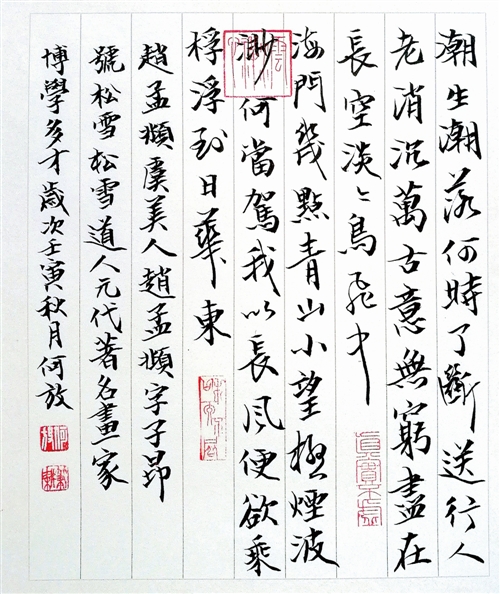 潮生潮落何時了斷送行人
老消沉萬古意無窮盡在
長空淡〻鳥飛中
海門幾點青山小望極煙波
渺何當駕我以長風便欲乘
桴浮到日華東
趙孟頫虞美人趙孟頫字子昂
號松雪松雪道人元代著名畫家
博學多才歲次壬寅秋月何放